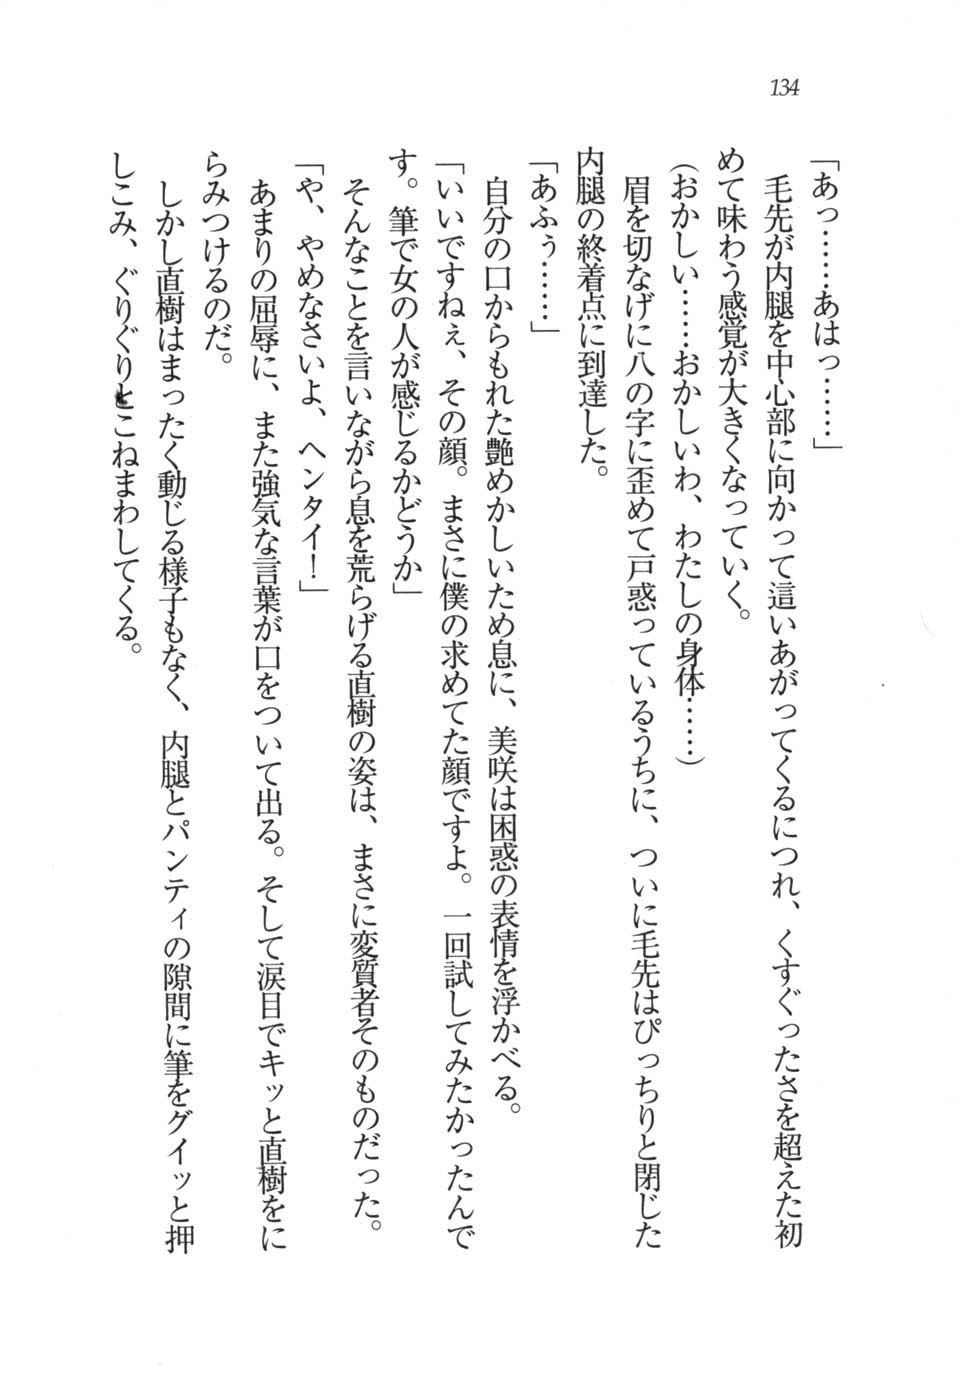 134
「あっ……あはっ……」
毛先が内腿を中心部に向かって這いあがってくるにつれ、くすぐったさを超えた初
めて味わう感覚が大きくなっていく。
（おかしい……おかしいわ、わたしの身体……）
眉を切なげに八の字に歪めて戸惑っているうちに、ついに毛先はぴっちりと閉じた
内腿の終着点に到達した。
「あふぅ……」
自分の口からもれた艶めかしいため息に、美咲は困惑の表情を浮かべる。
「いいですねぇ、その顔。まさに僕の求めてた顔ですよ。一回試してみたかったんで
す。筆で女の人が感じるかどうか」
そんなことを言いながら息を荒らげる直樹の姿は、まさに変質者そのものだった。
「や、やめなさいよ、ヘンタイ！」
あまりの屈辱に、また強気な言葉が口をついて出る。そして涙目でキッと直樹をに
らみつけるのだ。
しかし直樹はまったく動じる様子もなく、内腿とパンティの隙間に筆をグイッと押
しこみ、ぐりぐりとこねまわしてくる。